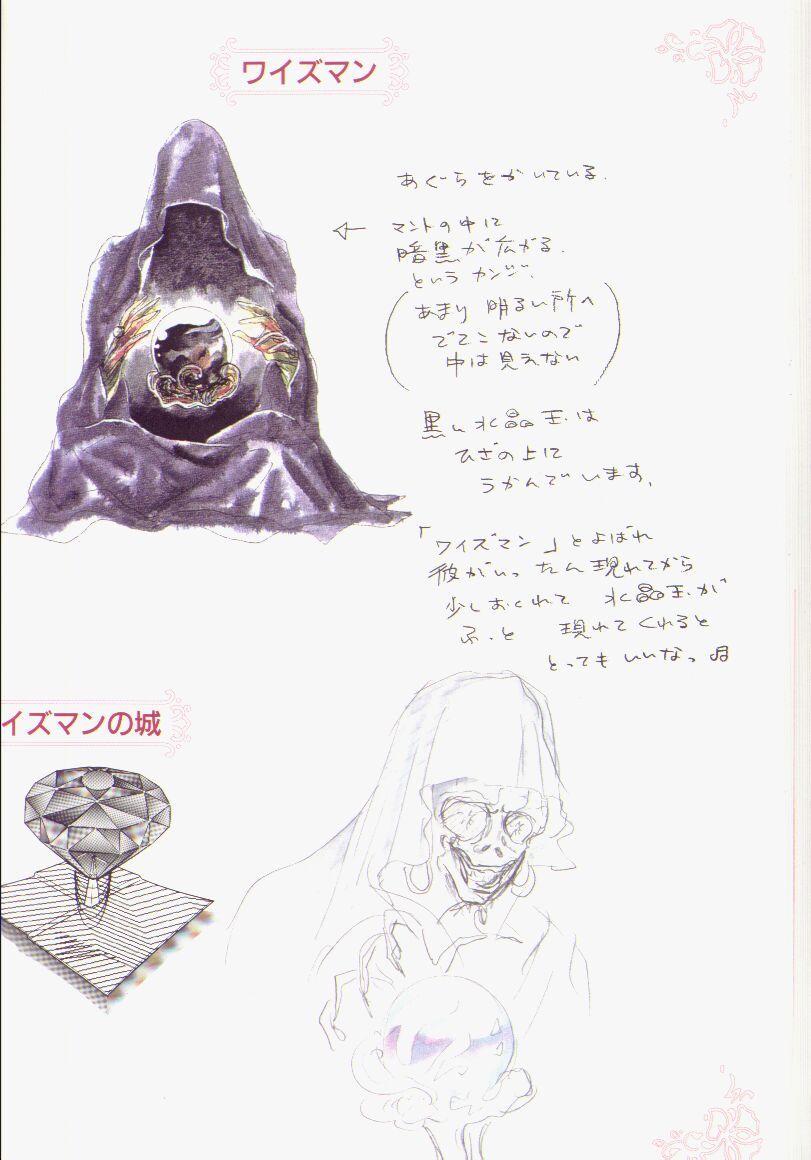 ワイズマン
あぐらをかいている.
← マントの中に
暗黒が広がる.
というカンジ.
(あまり 明るい所へ
でてこないので
中は見えない)
黒い水晶玉は
ひざの上に
うかんでいます.
「ワイズマン」とよばれ
彼がいったん現れてから
少しおくれて 水晶玉が
ふっと 現れてくれると
とってもいいなっ♫
イズマンの城